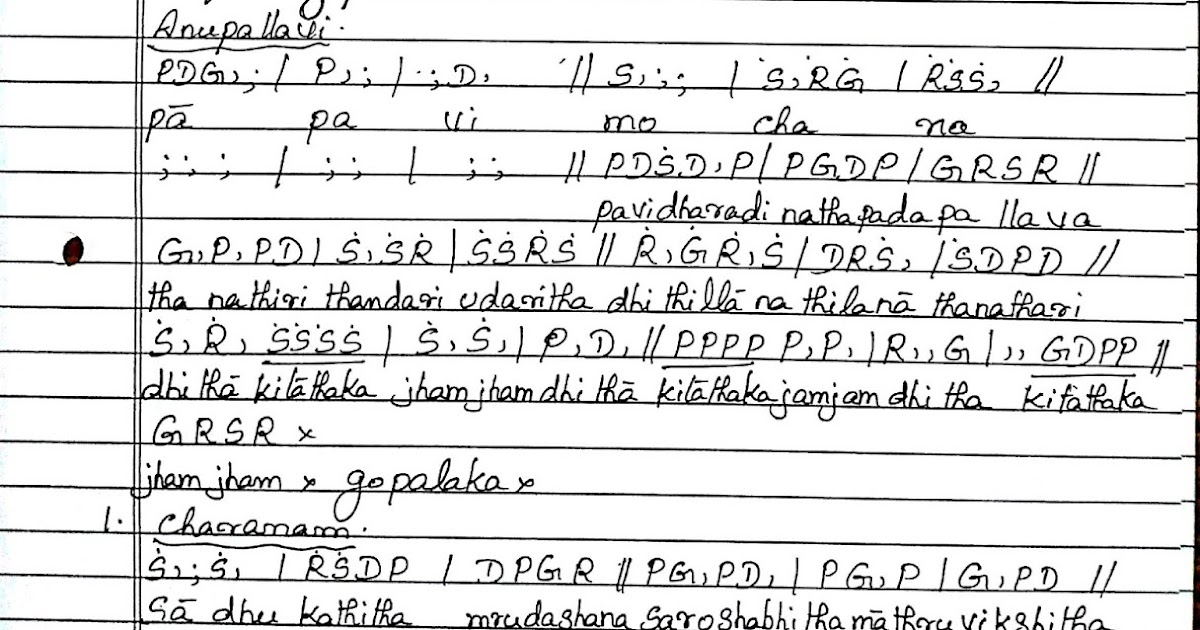 Anupallavi.
PDG,; / P,; / ;D, // S,;; / Ṡ,ṘĠ / ṘṠṠ, //
pā pa vi mo cha na
;;; / ;; / ;; // PDṠD,P / PGDP / GRSR //
pavidharadi nathapada pa llava
G,P,PD / Ṡ,ṠṘ / ṠṠṘṠ // Ṙ,ĠṘ,Ṡ / DṘṠ, / ṠDPD //
tha nathiri thandari udaritha dhi thillā na thilanā thanathari
Ṡ,Ṙ, ṠṠṠṠ / Ṡ,Ṡ, / P,D, // PPPP P,P, / R,,G / ,, GDPP //
dhi thā kitāthaka jhamjham dhi thā kitāthaka jamjam dhi tha kitāthaka
GRSR x
jham jham x gopalaka x
1. Charanam.
Ṡ,;Ṡ, / ṘṠDP / DPGR // PG,PD, / PG,P / G,PD //
Sā dhu kathitha mrudashana saroshabhi thamāthru vikshitha